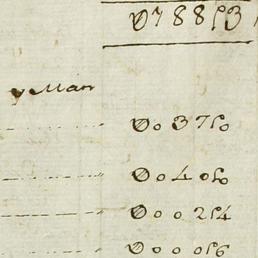 078853
y Man
003750
004050
000254
000056